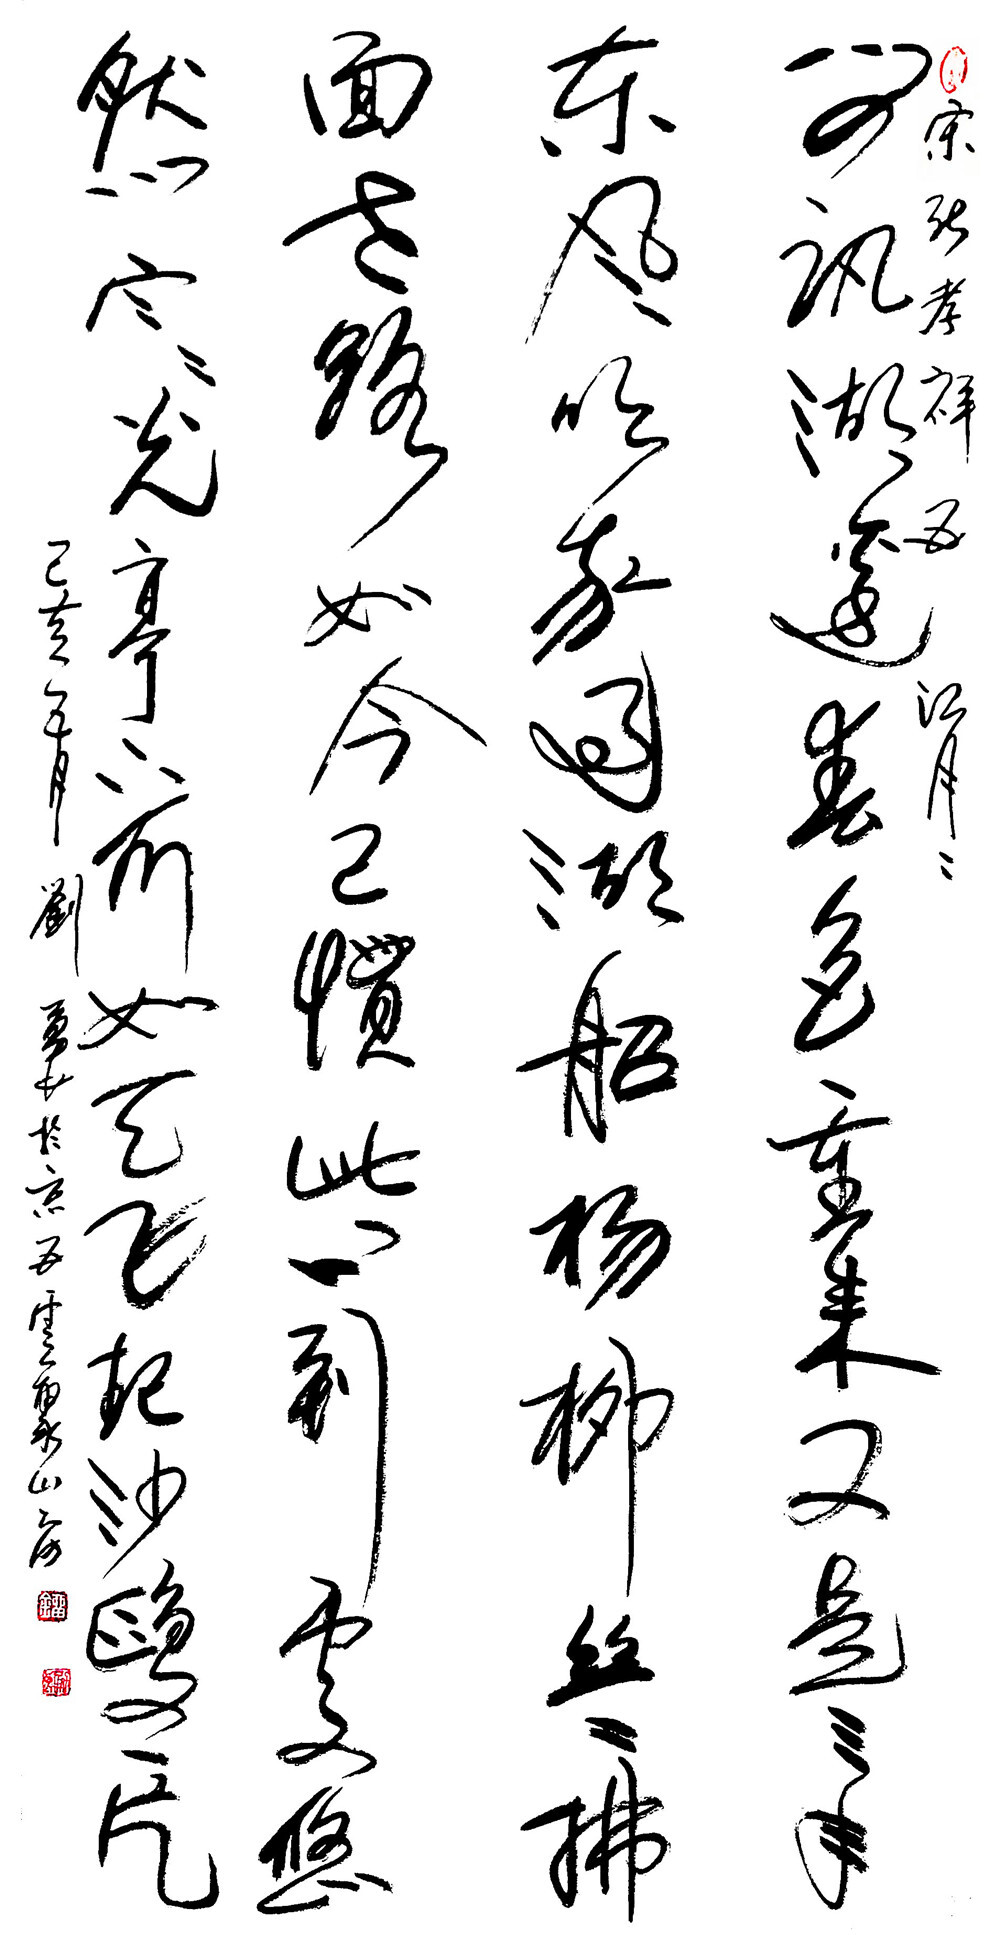 宋張孝祥西江月
问訊湖邊春色重来又是三年
东风吹我過湖船杨柳丝丝拂
面世路如今已慣此心到處悠
然寒光亭下水如天飞起沙鷗一片
己亥年月劉勇書於京西雲山房